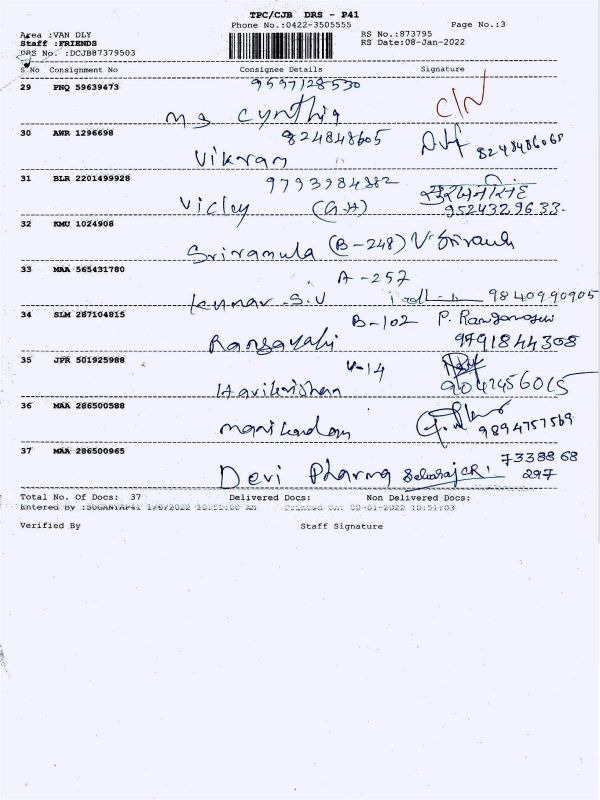 TPC/CJB DRS - P41
Phone No.:0422-3505555 Page No.:3
Area :VAN DLY RS No.:873795
Staff :FRIENDS RS Date:08-Jan-2022
DRS No. :DCJB87379503
S No Consignment No Consignee Details Signature
29 PNQ 59639473 9597128530
Ms Cynthia C/N
30 AWR 1296698 824848605
Vikram 8248486065
31 BLR 2201499928 9793984382
Vicky (G.H) 9524329633.
32 KMU 1024908
Sriramula (B-248) V. Sriram
33 MAA 565431780 A-257
Kumar.S.V 9840990905
34 SLM 287104815 B-102 P.
9791844308
35 JPR 501925988 V-14
Harikrishnan 9042456015
36 MAA 286500588
Manikandan 9894757569
37 MAA 286500965 7338868
Devi Pharma 297
Total No. Of Docs: 37 Delivered Docs: Non Delivered Docs:
Entered By :SUGANYAP41 1/8/2022 10:51:00 AM Printed On: 08-01-2022 10:51:03
Verified By Staff Signature